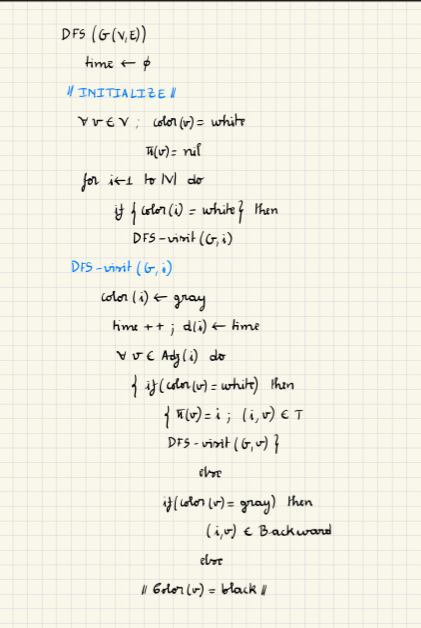 DFS (G(V,E))
time ← ϕ
// INITIALIZE //
∀ v ∈ V ; color(v) = white
π(v) = nil
for i←1 to |V| do
if { color(i) = white } then
DFS-visit (G,i)
DFS-visit (G,i)
color (i) ← gray
time ++ ; d(i) ← time
∀ v ∈ Adj(i) do
{ if (color(v) = white) then
{ π(v) = i ; (i,v) ∈ T
DFS-visit (G,v) }
else
if (color(v) = gray) then
(i,v) ∈ Backward
else
// Color(v) = black //